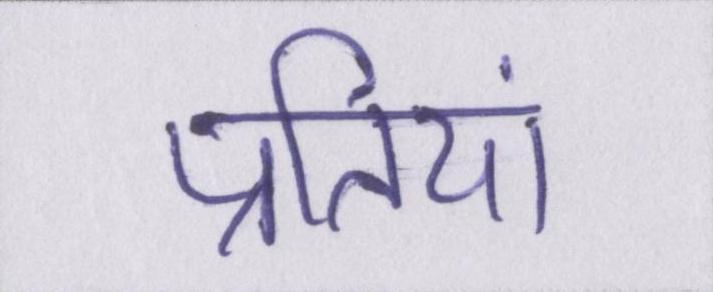 प्रतियां